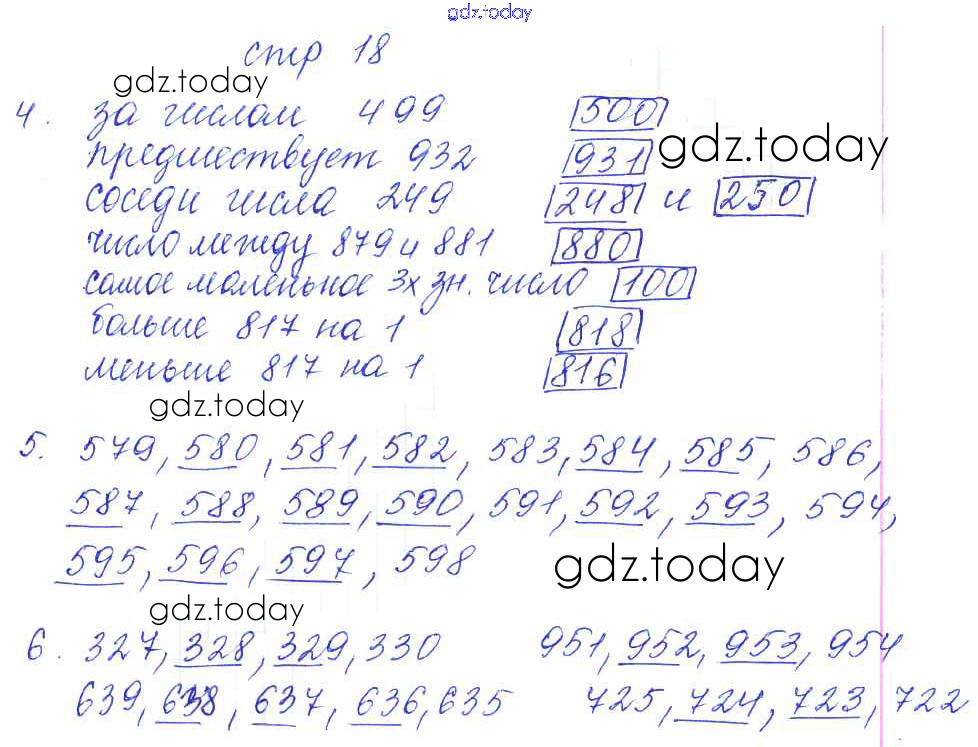 gdz.today
стр 18
gdz.today
4. за числом 499 500
gdz.today
предшествует 932 931
соседи числа 249 248 и 250
число между 879 и 881 880
самое маленькое 3х зн. число 100
больше 817 на 1 818
меньше 817 на 1 816
gdz.today
5. 579, 580, 581, 582, 583, 584, 585, 586,
587, 588, 589, 590, 591, 592, 593, 594,
595, 596, 597, 598
gdz.today
gdz.today
6. 327, 328, 329, 330 951, 952, 953, 954
639, 638, 637, 636, 635 725, 724, 723, 722